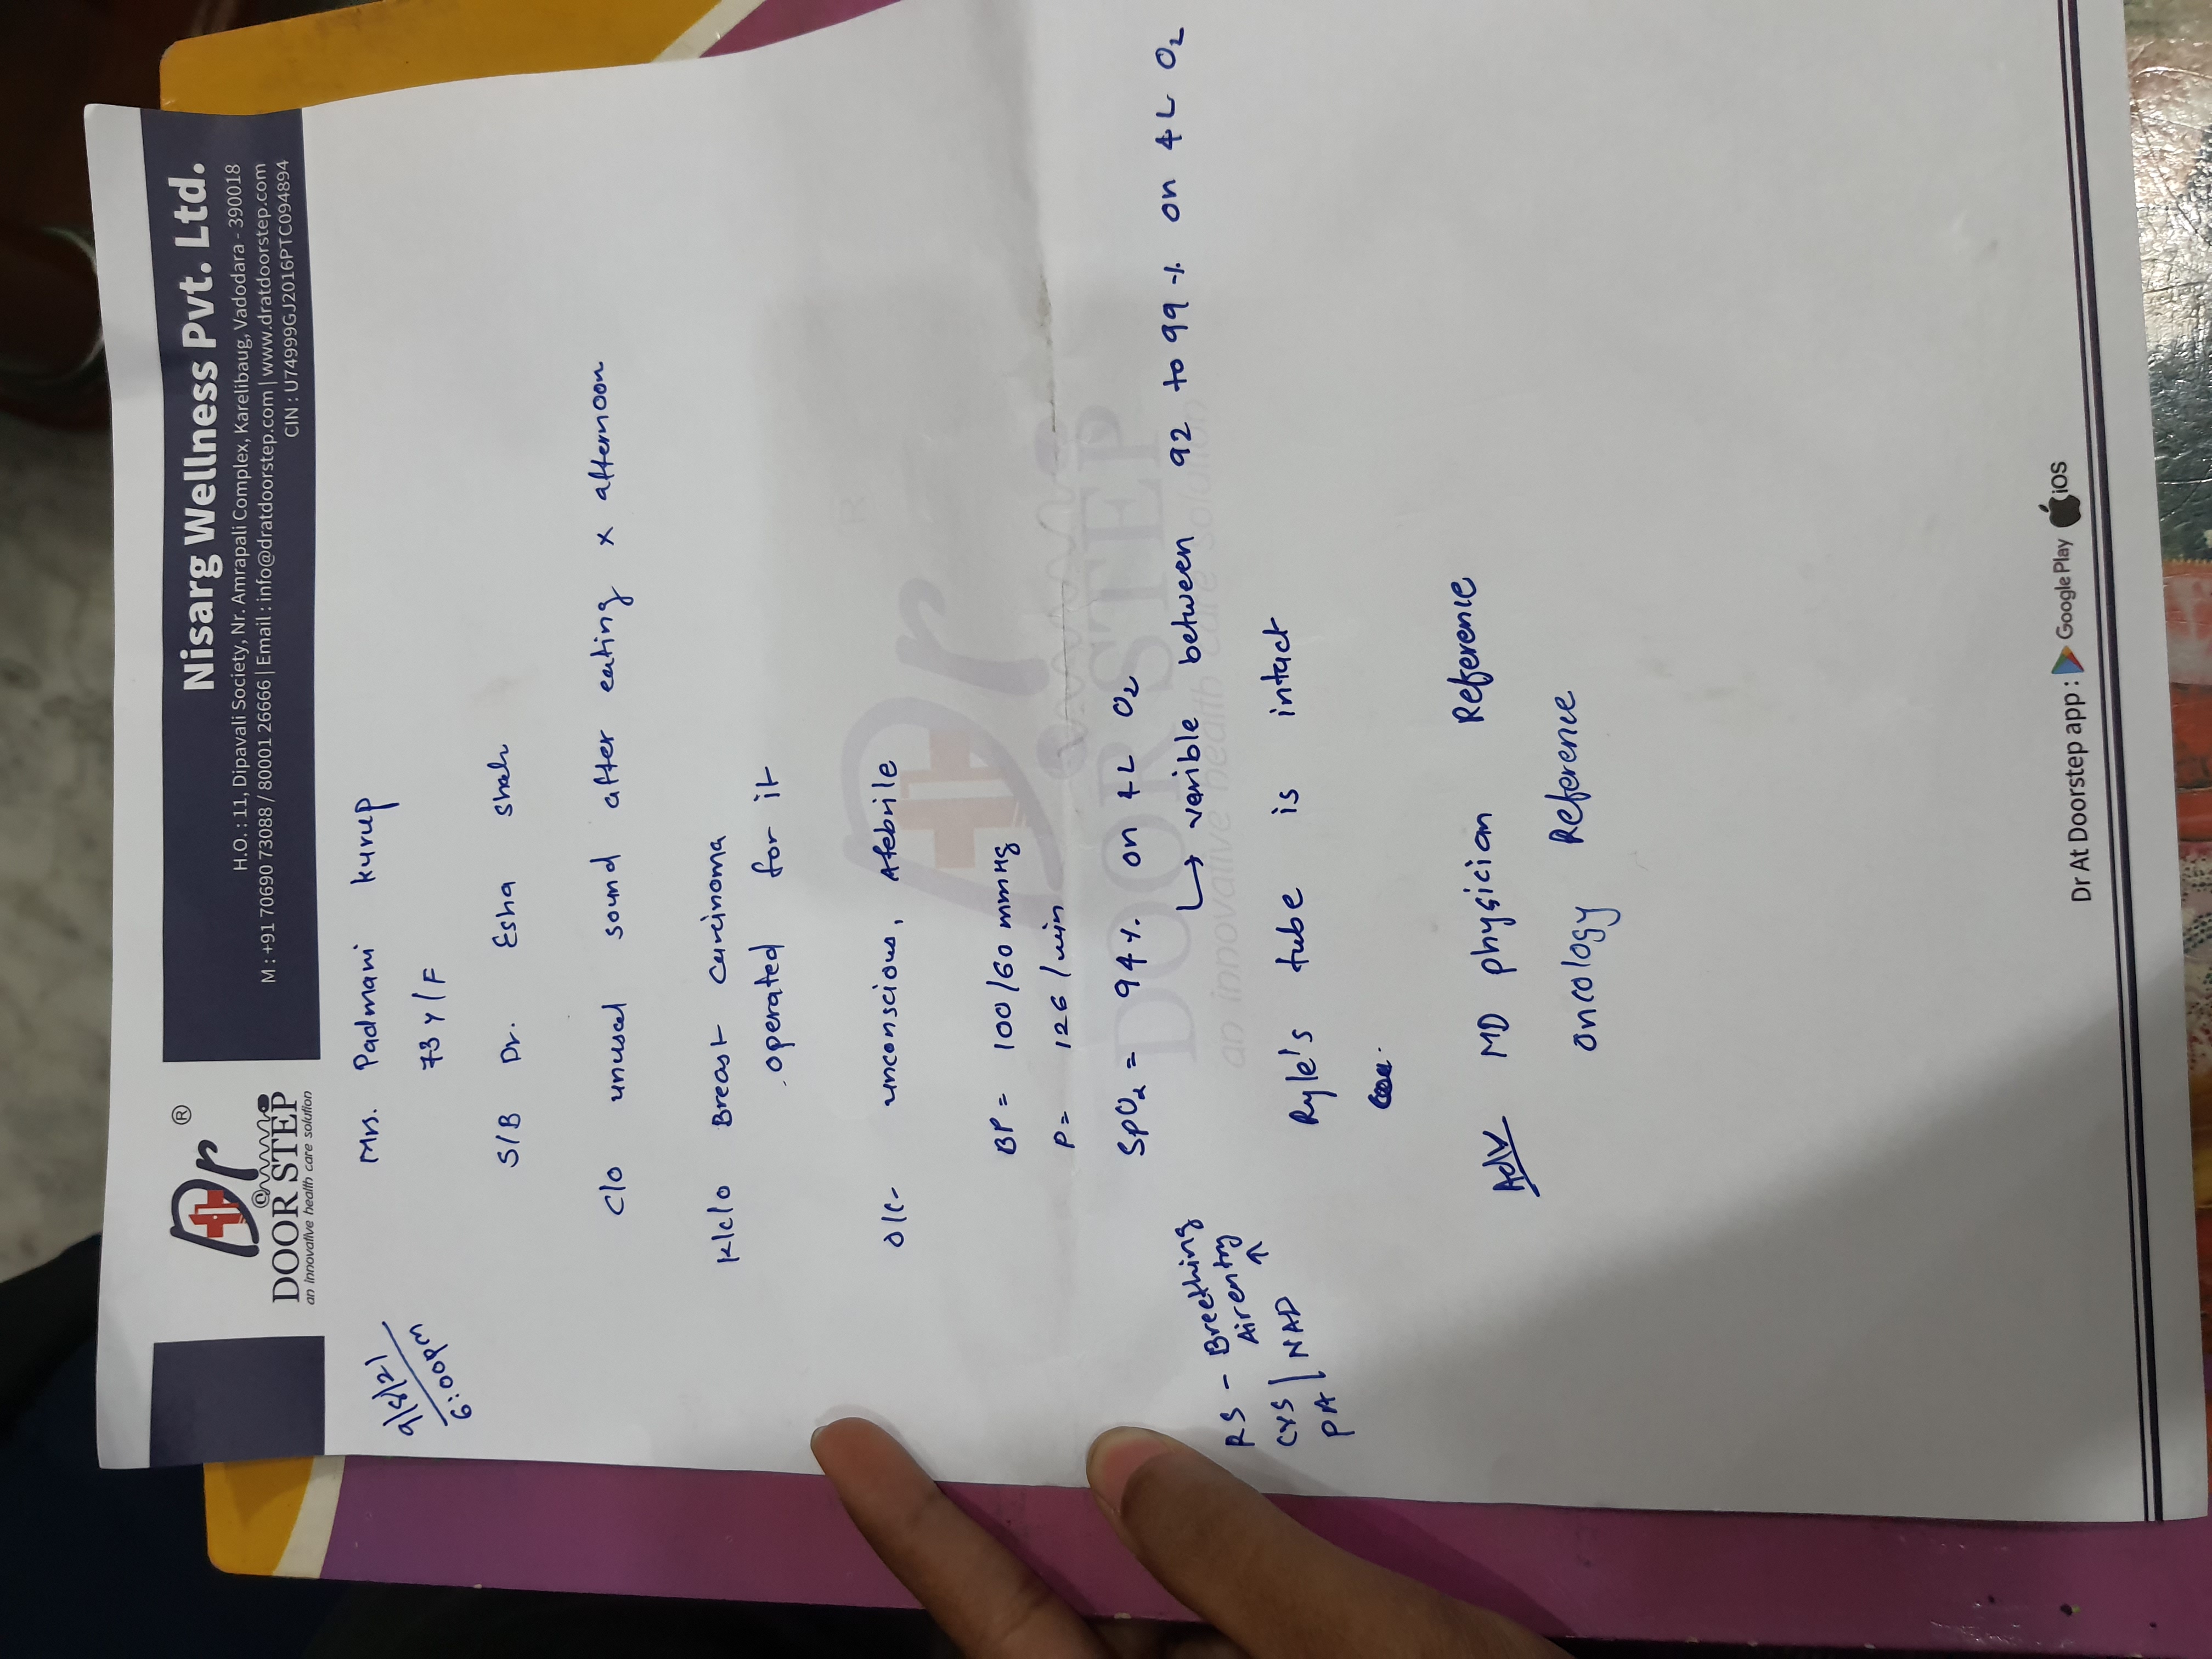 Dr ®
@
DOOR STEP
an innovative health care solution
Nisarg Wellness Pvt. Ltd.
H.O. : 11, Dipavali Society, Nr. Amrapali Complex, Karelibaug, Vadodara - 390018
M : +91 70690 73088 / 80001 26666 | Email : info@dratdoorstep.com | www.dratdoorstep.com
CIN : U74999GJ2016PTC094894
9/8/21
6:00pm
Mrs. Padmani Kurup
73 Y/F
S/B Dr. Esha Shah
C/O unusal sound after eating x afternoon
K/C/O Breast Carcinoma
operated for it
unconscious, Afebrile
BP = 100/60 mmHg
P = 126 /min
SpO2 = 94 % on 4L O2
↳ varible between 92 to 99 % on 4 L O2
RS - Breething
Airentry
↑
CVS | NAD
PA
Ryle's tube is intact
Adv MD physician Reference
oncology Reference
Dr
DOOR STEP
an innovative health care solution
Dr At Doorstep app : Google Play iOS